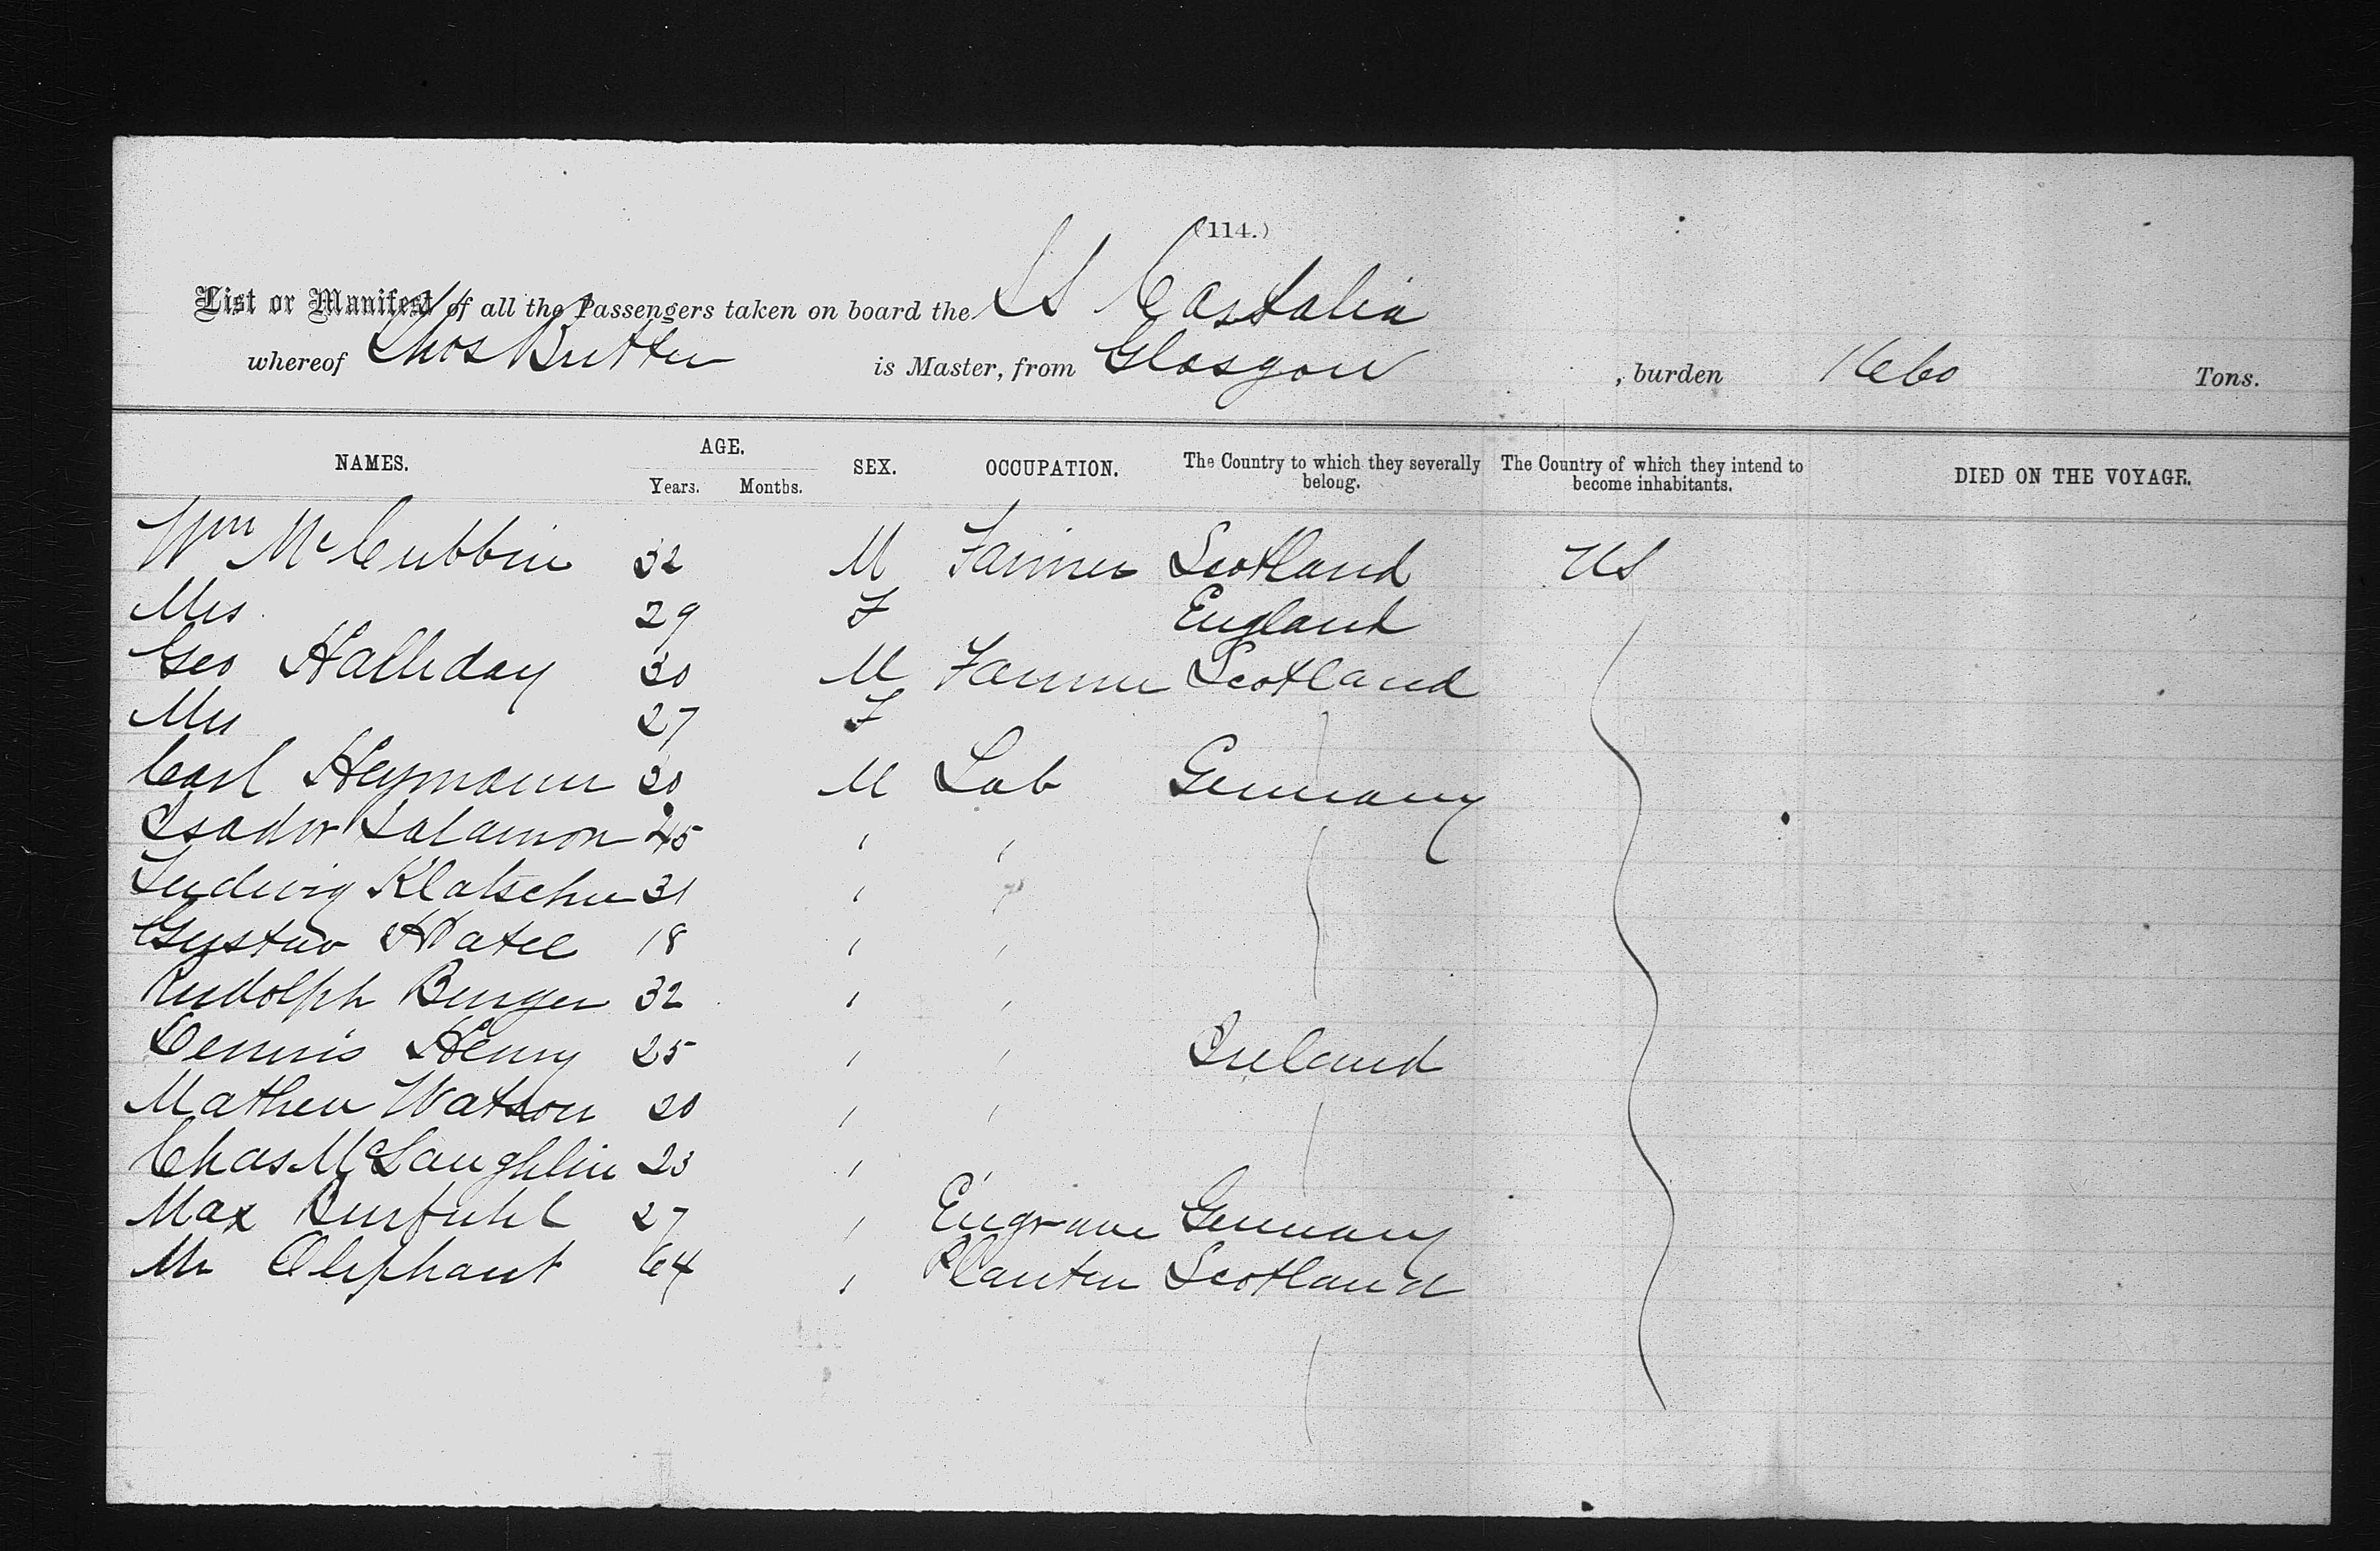 (114.)
List or Manifest of all the Passengers taken on board the SS Castalia
whereof Thos Butter is Master, from Glasgow , burden 1660 Tons.
NAMES. AGE. Years. Months. SEX. OCCUPATION. The Country to which they severally belong. The Country of which they intend to become inhabitants. DIED ON THE VOYAGE.
Wm McCubbin 32 M Farmer Scotland US
Mrs 29 F England
Geo Halliday 30 M Farmer Scotland
Mrs 27 F
Carl Heymann 30 M Lab Germany
Isador Salamon 45 " "
Ludwig 31 "
Gustav 18 " "
Rudolph Burger 32 " "
Dennis Henry 25 " " Ireland
Mathew Watson 20 " "
Chas McLaughlin 23 " "
Max 27 " Engraver Germany
Mr Oliphant 64 " Planter Scotland